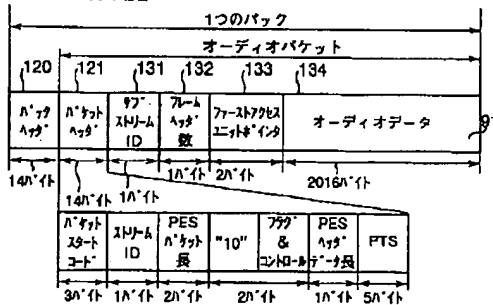 1つのパック
オーディオパケット
120 121 131 132 133 134
パック
ヘッダ
パケット
ヘッダ
サブ
ストリーム
ID
フレーム
ヘッダ
数
ファーストアクセス
ユニットポインタ
オーディオデータ
9
14バイト
14バイト
1バイト
1バイト
2バイト
2016バイト
パケット
スタート
コード
ストリーム
ID
PES
パケット
長
"10"
フラグ
&
コントロール
PES
ヘッダ
データ長
PTS
3バイト
1バイト
2バイト
2バイト
1バイト
5バイト